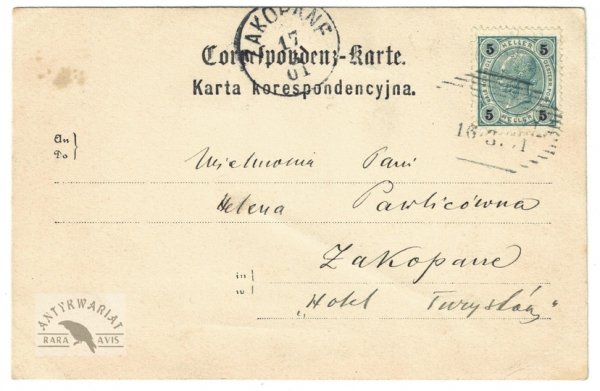 ZAKOPANE
17
01
Correspondenz-Karte.
Karta korespondencyjna.
5 HELLER 5
5 HELLER 5
16. 3. 1
An
Do
Wielmożna Pani
Helena Pawlicówna
Zakopane
in
w
„Hotel Turystów"
ANTYKWARIAT
RARA AVIS